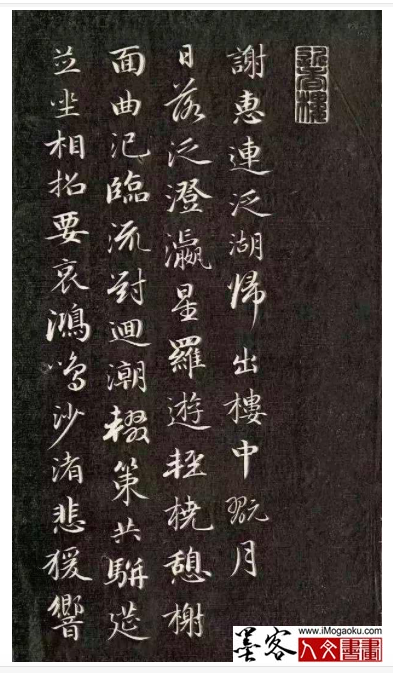 謝惠連泛湖歸出樓中翫月
日落泛澄瀛星羅遊輕橈憩榭
面曲汜臨流對迴潮輟策共駢筵
並坐相招要哀鴻鳴沙渚悲猨響
墨客
www.iMogaoku.com
人文書畫